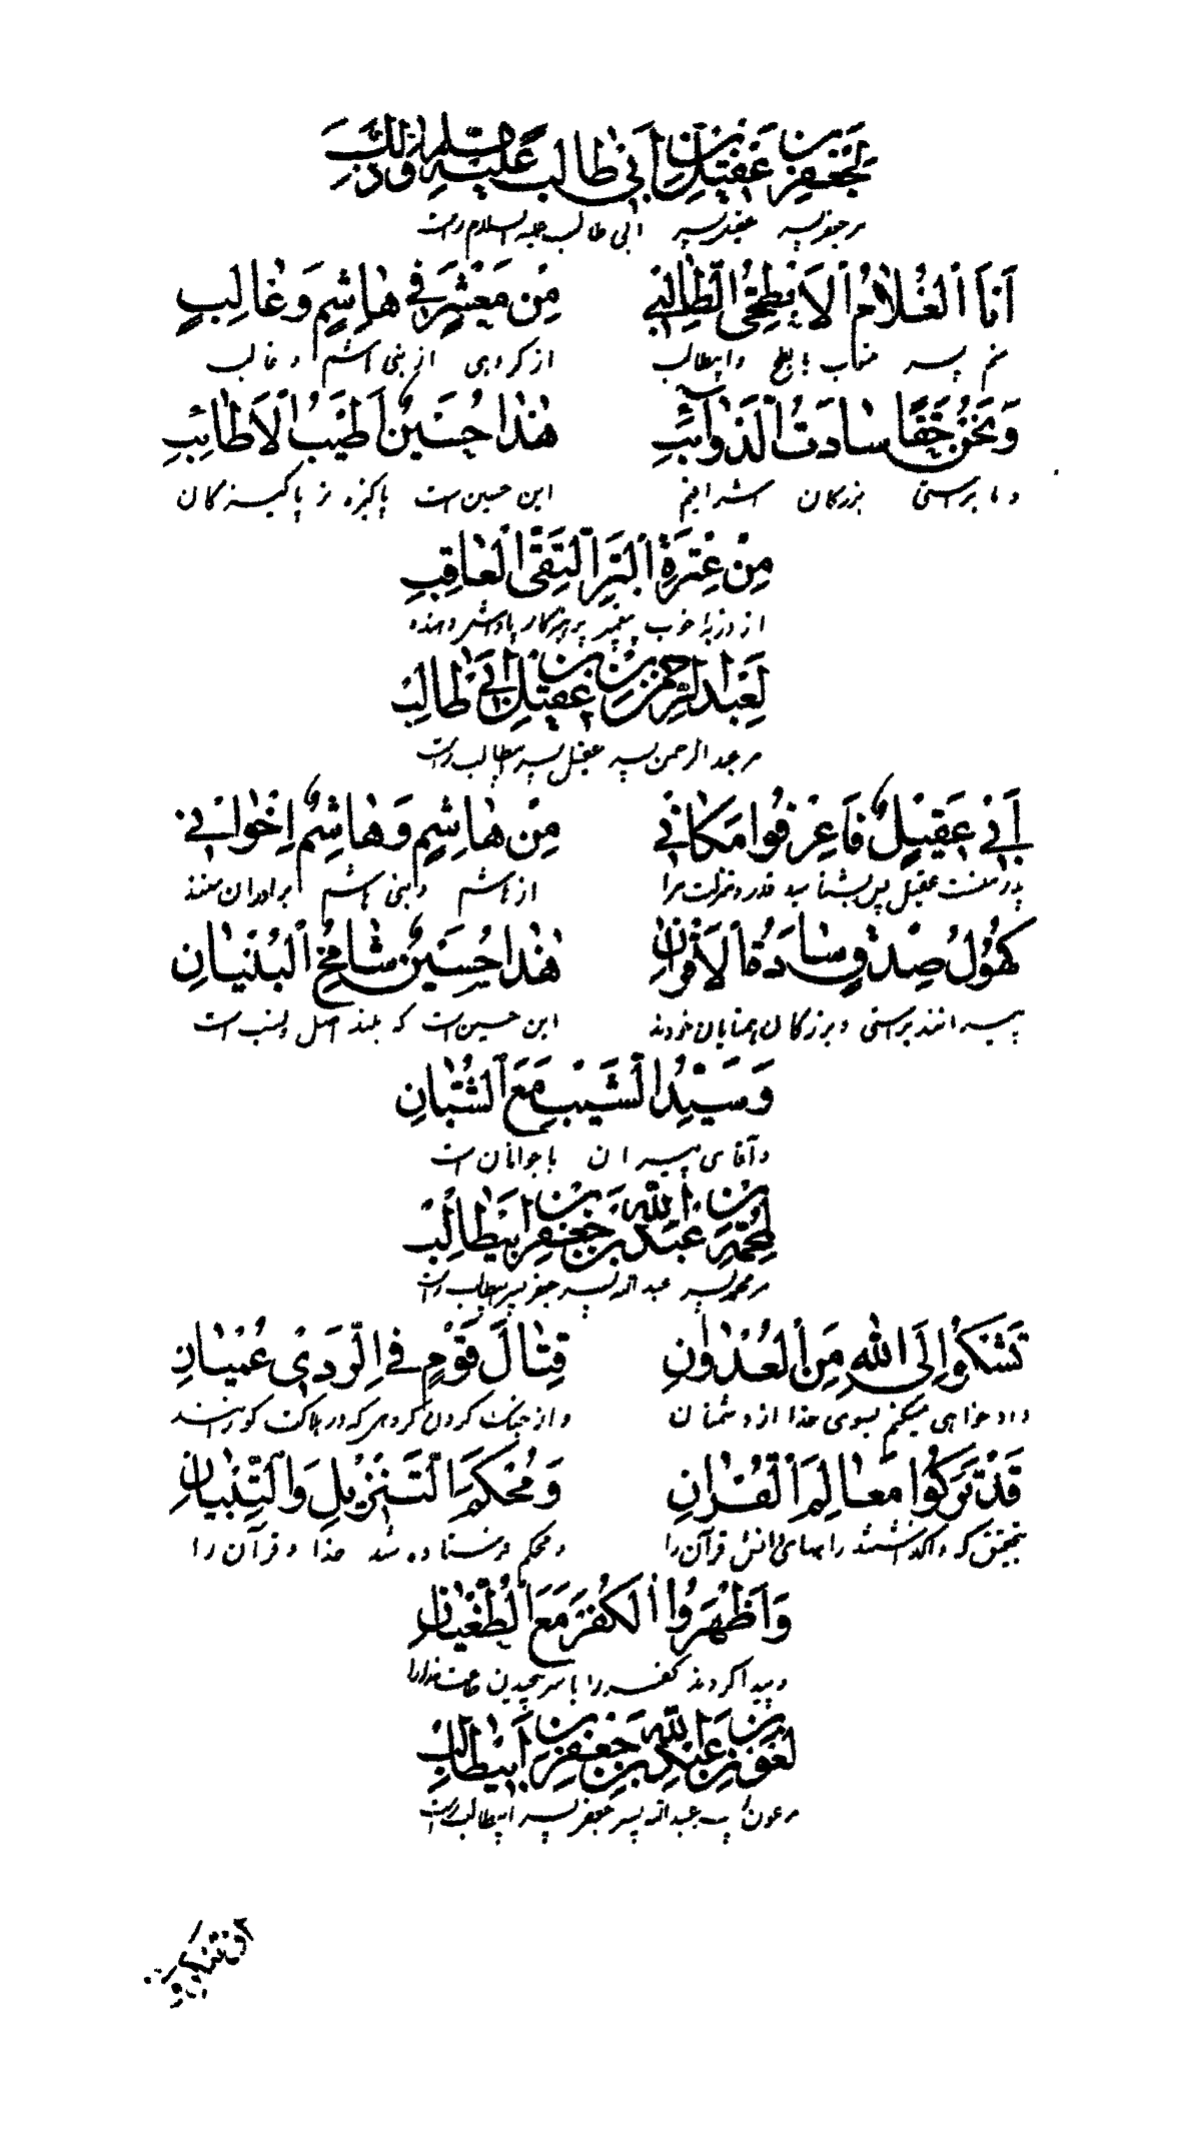 لِجَعْفَرِ بْنِ عَقِيْلِ بْنِ أَبي طالب عَلَيهِ السلم وذلك
مر جعفر پسر عقیل پسر ابی طالب علیه السلام راست
اَنَا الْغُلامُ الْاَبْطَحِىُّ الطّالِبي مِنْ مَعْشَرٍ في هاشِمٍ وَغالِبٍ
منم پسر منساب ابطح وابیطالب از کروهی از بنی هاشم و غالب
وَنَحْنُ حَقًّا سادَتُ الذَّوائِبِ هٰذا حُسَيْنٌ اَطْيَبُ الْاَطائِبِ
و ما براستی بزرکان اشرافیم این حسین است پاکیزه تر پاکیزه کان
مِنْ عِتْرَةِ الْبَرِّ التَّقِىِّ الْعاقِبِ
از ذریهٔ خوب پیغمبر پرهیزکار پاداش دهنده
لِعَبْدِ الرَّحْمٰنِ بْنِ عَقيلِ بْنِ اَبي طالِبْ
مر عبد الرحمن پسر عقیل پسر ابیطالب راست
اَبي عَقِيْلٌ فَاعْرِفُوا مَكاني مِنْ هاشِمٍ وَهاشِمٌ اِخْواني
پدرمنست عقیل پس بشناسید قدر و منزلت مرا از هاشم و بنی هاشم برادران منند
كُهُوْلُ صِدْقٍ سادَةُ الْاَقْرانِ هٰذا حُسَيْنٌ شامِخُ الْبُنْيانِ
پیرانند براستی و بزرکان همتایان خودند این حسین است که بلند اصل و نسب است
وَسَيِّدُ الشَّيْبِ مَعَ الشُّبّانِ
و آقای پیران با جوانان است
لِمُحَمَّدِ بْنِ عَبْدِ اللّٰهِ بْنِ جَعْفَرِ بْنِ ابيطالِبْ
مر محمد پسر عبد الله پسر جعفر پسر ابیطالب راست
تَشْكُوا اِلَى اللّٰهِ مِنَ الْعُدْوانِ قِتالَ قَوْمٍ فِي الرَّدىٰ عُمْيانِ
داد خواهی میکنم بسوی خدا از دشمنان و از جنک کردن کروهی که در هلاکت کورانند
قَدْ تَرَكُوا مَعالِمَ الْقُرْانِ وَمُحْكَمَ التَّنْزيلِ وَالتِّبْيانِ
بتحقیق که واکذاشتند راههای دانش قرآن را و محکم فرستاده شد خدا و قرآن را
وَاَظْهَرُوا الْكُفْرَ مَعَ الطُّغْيانِ
و پیدا کردند کفر را با سرپیچیدن طاعت خدا را
لِعَوْنِ بْنِ عَبْدِ اللّٰهِ بْنِ جَعْفَرِ بْنِ اَبيطالِبْ
مر عون پسر عبد الله پسر جعفر پسر ابیطالب راست